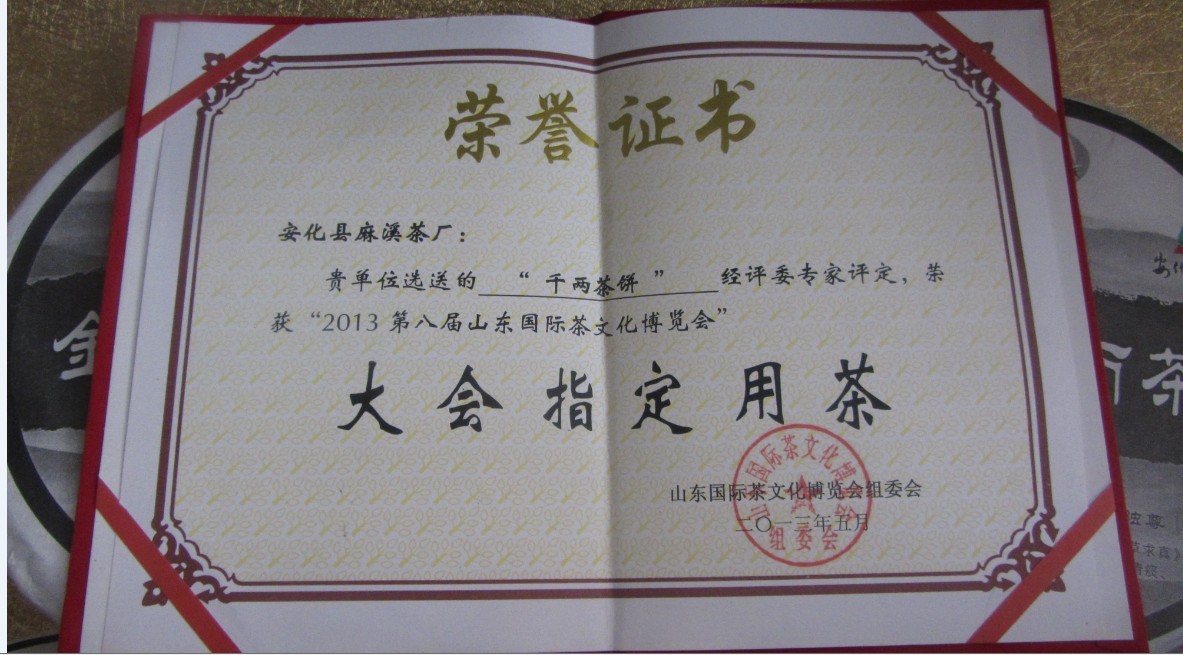 荣誉证书
安化县麻溪茶厂：
贵单位选送的 “千两茶饼” 经评委专家评定，荣
获“2013 第八届山东国际茶文化博览会”
大会指定用茶
山东国际茶文化博览会组委会
二〇一三年五月
山东国际茶文化博览会
组委会
金
两茶
安化
求直